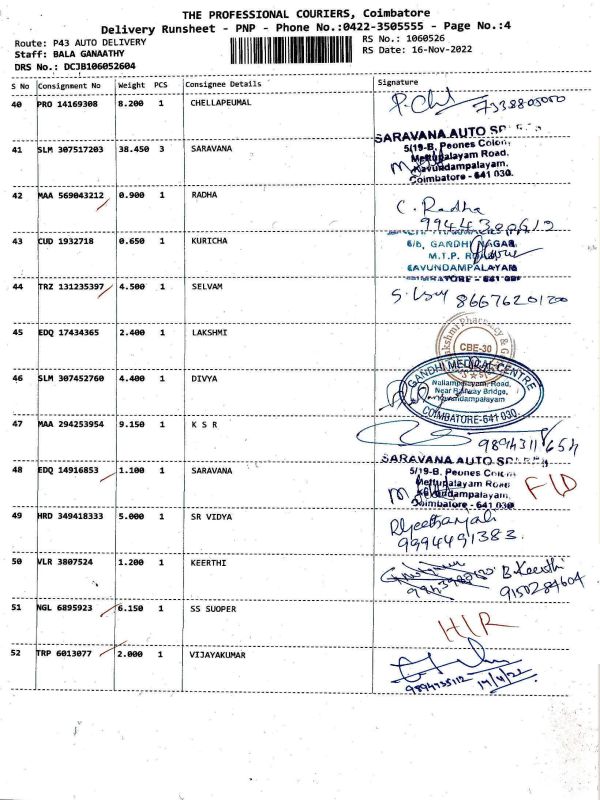 THE PROFESSIONAL COURIERS, Coimbatore
Delivery Runsheet - PNP - Phone No.:0422-3505555 - Page No.:4
Route: P43 AUTO DELIVERY
RS No.: 1060526
Staff: BALA GANAATHY
RS Date: 16-Nov-2022
DRS No.: DCJB106052604
S No Consignment No Weight PCS Consignee Details Signature
40 PRO 14169308 8.200 1 CHELLAPEUMAL
P. Chl 7338805050
SARAVANA AUTO
41 SLM 307517203 38.450 3 SARAVANA
5/19-B, Peones Colony
Mettupalayam Road,
Kavundampalayam,
Coimbatore - 641 030.
42 MAA 569043212 0.900 1 RADHA
C. Radha
43 CUD 1932718 0.650 1 KURICHA
6/B, GANDHI NAGAR
M.T.P. ROAD
KAVUNDAMPALAYAM
44 TRZ 131235397 4.500 1 SELVAM
8667620120
45 EDQ 17434365 2.400 1 LAKSHMI
CBE-30
46 SLM 307452760 4.400 1 DIVYA
GANDHI MEDICAL CENTRE
Nallampalayam, Road,
Near Railway Bridge,
Kavundampalayam
COIMBATORE-641 030.
47 MAA 294253954 9.150 1 K S R
9894311654
SARAVANA AUTO
48 EDQ 14916853 1.100 1 SARAVANA
5/19-B, Peones Colony
Mettupalayam Road
Kavundampalayam,
Coimbatore - 641 030.
F/D
49 HRD 349418333 5.000 1 SR VIDYA
9994491383.
50 VLR 3807524 1.200 1 KEERTHI
B. Keerthi
9150284604
51 NGL 6895923 6.150 1 SS SUOPER
H/R
52 TRP 6013077 2.000 1 VIJAYAKUMAR
9894735112